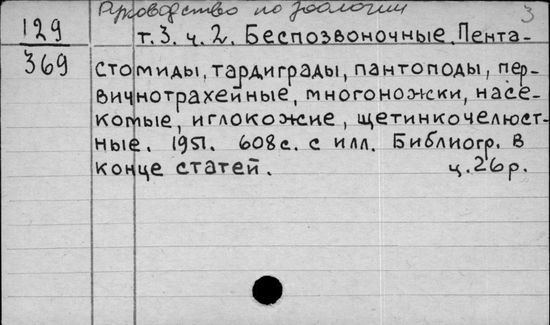 Руководство по зоологии 3
129 т.3. ч.2. Беспозвоночные. Пента-
369 стомиды, тардиграды, пантоподы, пер-
вичнотрахейные, многоножки, насе-
комые, иглокожие, щетинкочелюст-
ные. 1951. 608 с. с илл. Библиогр. в
конце статей. ц. 26 р.